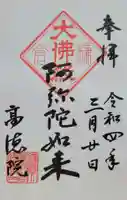 奉拝
令和四年
三月廿日
大佛
阿弥陀如来
高徳院